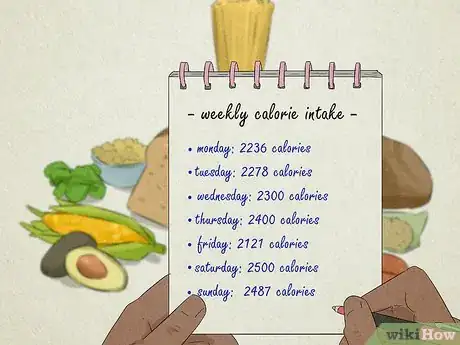 - weekly calorie intake -
• monday: 2236 calories
• tuesday: 2278 calories
• wednesday: 2300 calories
• thursday: 2400 calories
• friday: 2121 calories
• saturday: 2500 calories
• sunday: 2487 calories
wikiHow